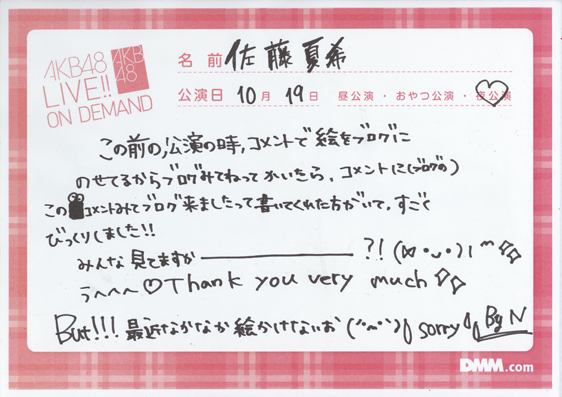 AKB48
LIVE!!
ON DEMAND
AKB
48
名前 佐藤夏希
公演日 10月 19日 昼公演・おやつ公演・夜公演
この前の公演の時、コメントで絵をブログに
のせてるからブログみてねってかいたら、コメントに(ブログの)
この コメントみてブログ来ましたって書いてくれた方がいて、すごく
びっくりしました!!
みんな見てますか ?!
う〜〜〜♡Thank you very much
But!!! 最近なかなか絵かけてないお sorry By N
DMM.com